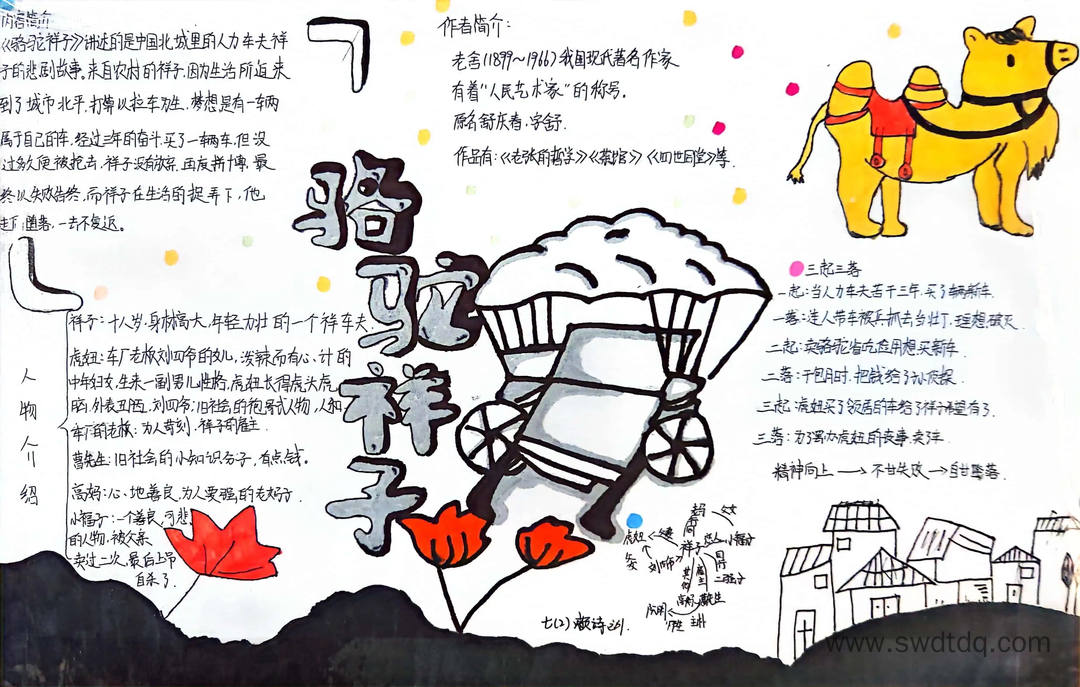 内容简介
《骆驼祥子》讲述的是中国北城里的人力车夫祥
子的悲剧故事。来自农村的祥子,因为生活所迫来
到了城市北平,打算以拉车为生,梦想是有一辆
属于自己的车,经过三年的奋斗,买了一辆车,但没
过多久便被抢去,祥子没有放弃,再度拼博,最
终以失败告终,而祥子在生活的捉弄下,他
走了堕落,一去不复返。
作者简介:
老舍(1899~1966)我国现代著名作家
有着“人民艺术家”的称号。
原名舒庆春,字舒.
作品有:《老张的哲学》《茶馆》《四世同堂》等.
骆驼祥子
三起三落
一起:当人力车夫苦干三年,买了辆新车.
一落:连人带车被兵抓去当壮丁,理想破灭.
二起:卖骆驼省吃俭用想买新车.
二落:干包月时,把钱给了孙侦探.
三起:虎妞买了邻居的车给了祥子希望有了.
三落:为了置办虎妞的丧事,卖了车.
精神向上→不甘失败→自甘堕落.
人物介绍
祥子:十八岁,身材高大,年轻力壮的一个祥车夫.
虎妞:车厂老板刘四爷的女儿,泼辣而有心计的
中年妇女,生来一副男儿性格,虎妞长得虎头虎
脑,外表丑陋,刘四爷:旧社会的袍哥式人物,人和
车厂的老板:为人苛刻.祥子的雇主
曹先生:旧社会的小知识分子,有点钱。
高妈:心地善良,为人要强的老妈子.
小福子:一个善良,可悲
的人物,被父亲
卖过二次,最后上吊
自杀了.
虎妞
父女
刘四爷
祥子
恋人
小福子
二强子
雇主
高妈
曹先生
七(2)
www.swdtdq.com